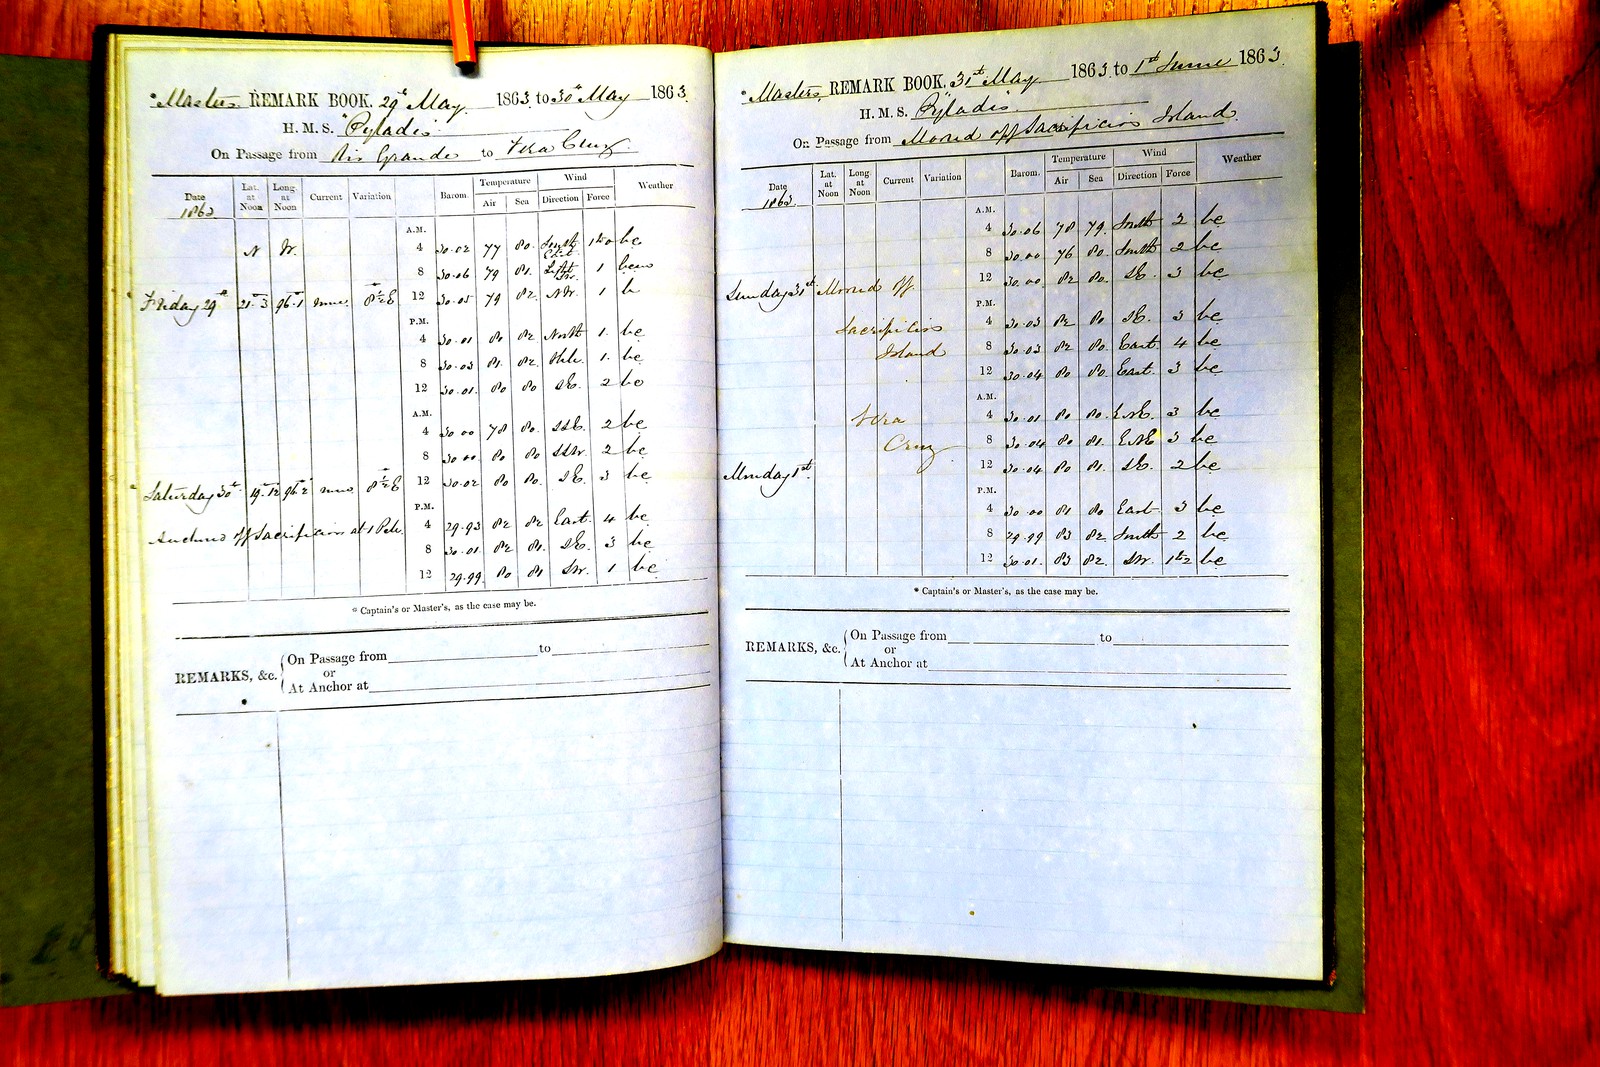 * Masters REMARK BOOK. 29th May 1863. to 30th May 1863.
H. M. S. "Pylades"
On Passage from Rio Grande to Vera Cruz.
Date 1863. Lat. at Noon Long. at Noon Current Variation Barom. Temperature Air Sea Wind Direction Force Weather
A.M.
N W. 4 30.02 77 80. South 1 to 0 bc
8 30.06 79 81. 1
Friday 29th 21.3 96.1 8½E 12 30.05 79 82. NW. 1 b
P.M.
4 30.01 80 82 North 1. bc
8 30.03 81. 82. 1. bc
12 30.01. 80 80 SE. 2 bc
A.M.
4 30.00 78 80. SSE. 2 bc
8 30.00. 80 80 SSW. 2 bc
Saturday 30th 19.12 96.2 8½E 12 30.02 80 80. SE. 3 bc
P.M.
Anchored off Sacrificios at 1 P.M. 4 29.93 82 82 East. 4 bc
8 30.01 82 81. SE. 3 bc
12 29.99. 80 81 SW. 1 bc
* Captain's or Master's, as the case may be.
REMARKS, &c. On Passage from to
or
At Anchor at
* Masters REMARK BOOK. 31st May 1863. to 1st June 1863.
H. M. S. "Pylades"
On Passage from Moored off Sacrificios Island.
Date 1863. Lat. at Noon Long. at Noon Current Variation Barom. Temperature Air Sea Wind Direction Force Weather
A.M.
4 30.06 78 79. South 2 bc
8 30.00 76 80. South 2 bc
Sunday 31st Moored off 12 30.00 82 80. SE. 3 bc
P.M.
Sacrificios 4 30.03 82 80 SE. 3 bc
Island 8 30.03 82 80. East 4 bc
12 30.04 80 80. East. 3 bc
A.M.
Vera 4 30.01 80 80. ENE. 3 bc
Cruz 8 30.04 80 81. ENE 3 bc
Monday 1st. 12 30.04. 80 81. SE. 2 bc
P.M.
4 30.00 81 80 East 3 bc
8 29.99 83 82 South 2 bc
12 30.01. 83 82. SW. 1 to 2 bc
* Captain's or Master's, as the case may be.
REMARKS, &c. On Passage from to
or
At Anchor at